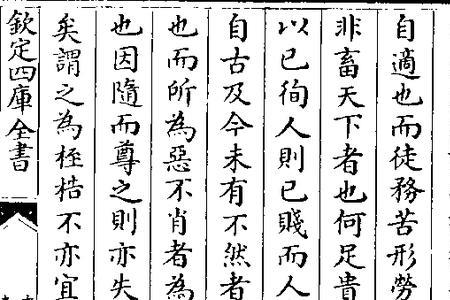 自適也而徒務苦形勞
非畜天下者也何足貴
以己徇人則己賤而人
自古及今未有不然者
也而所為惡不肖者為
也因隨而尊之則亦失
矣謂之為桎梏不亦宜
欽定四庫全書